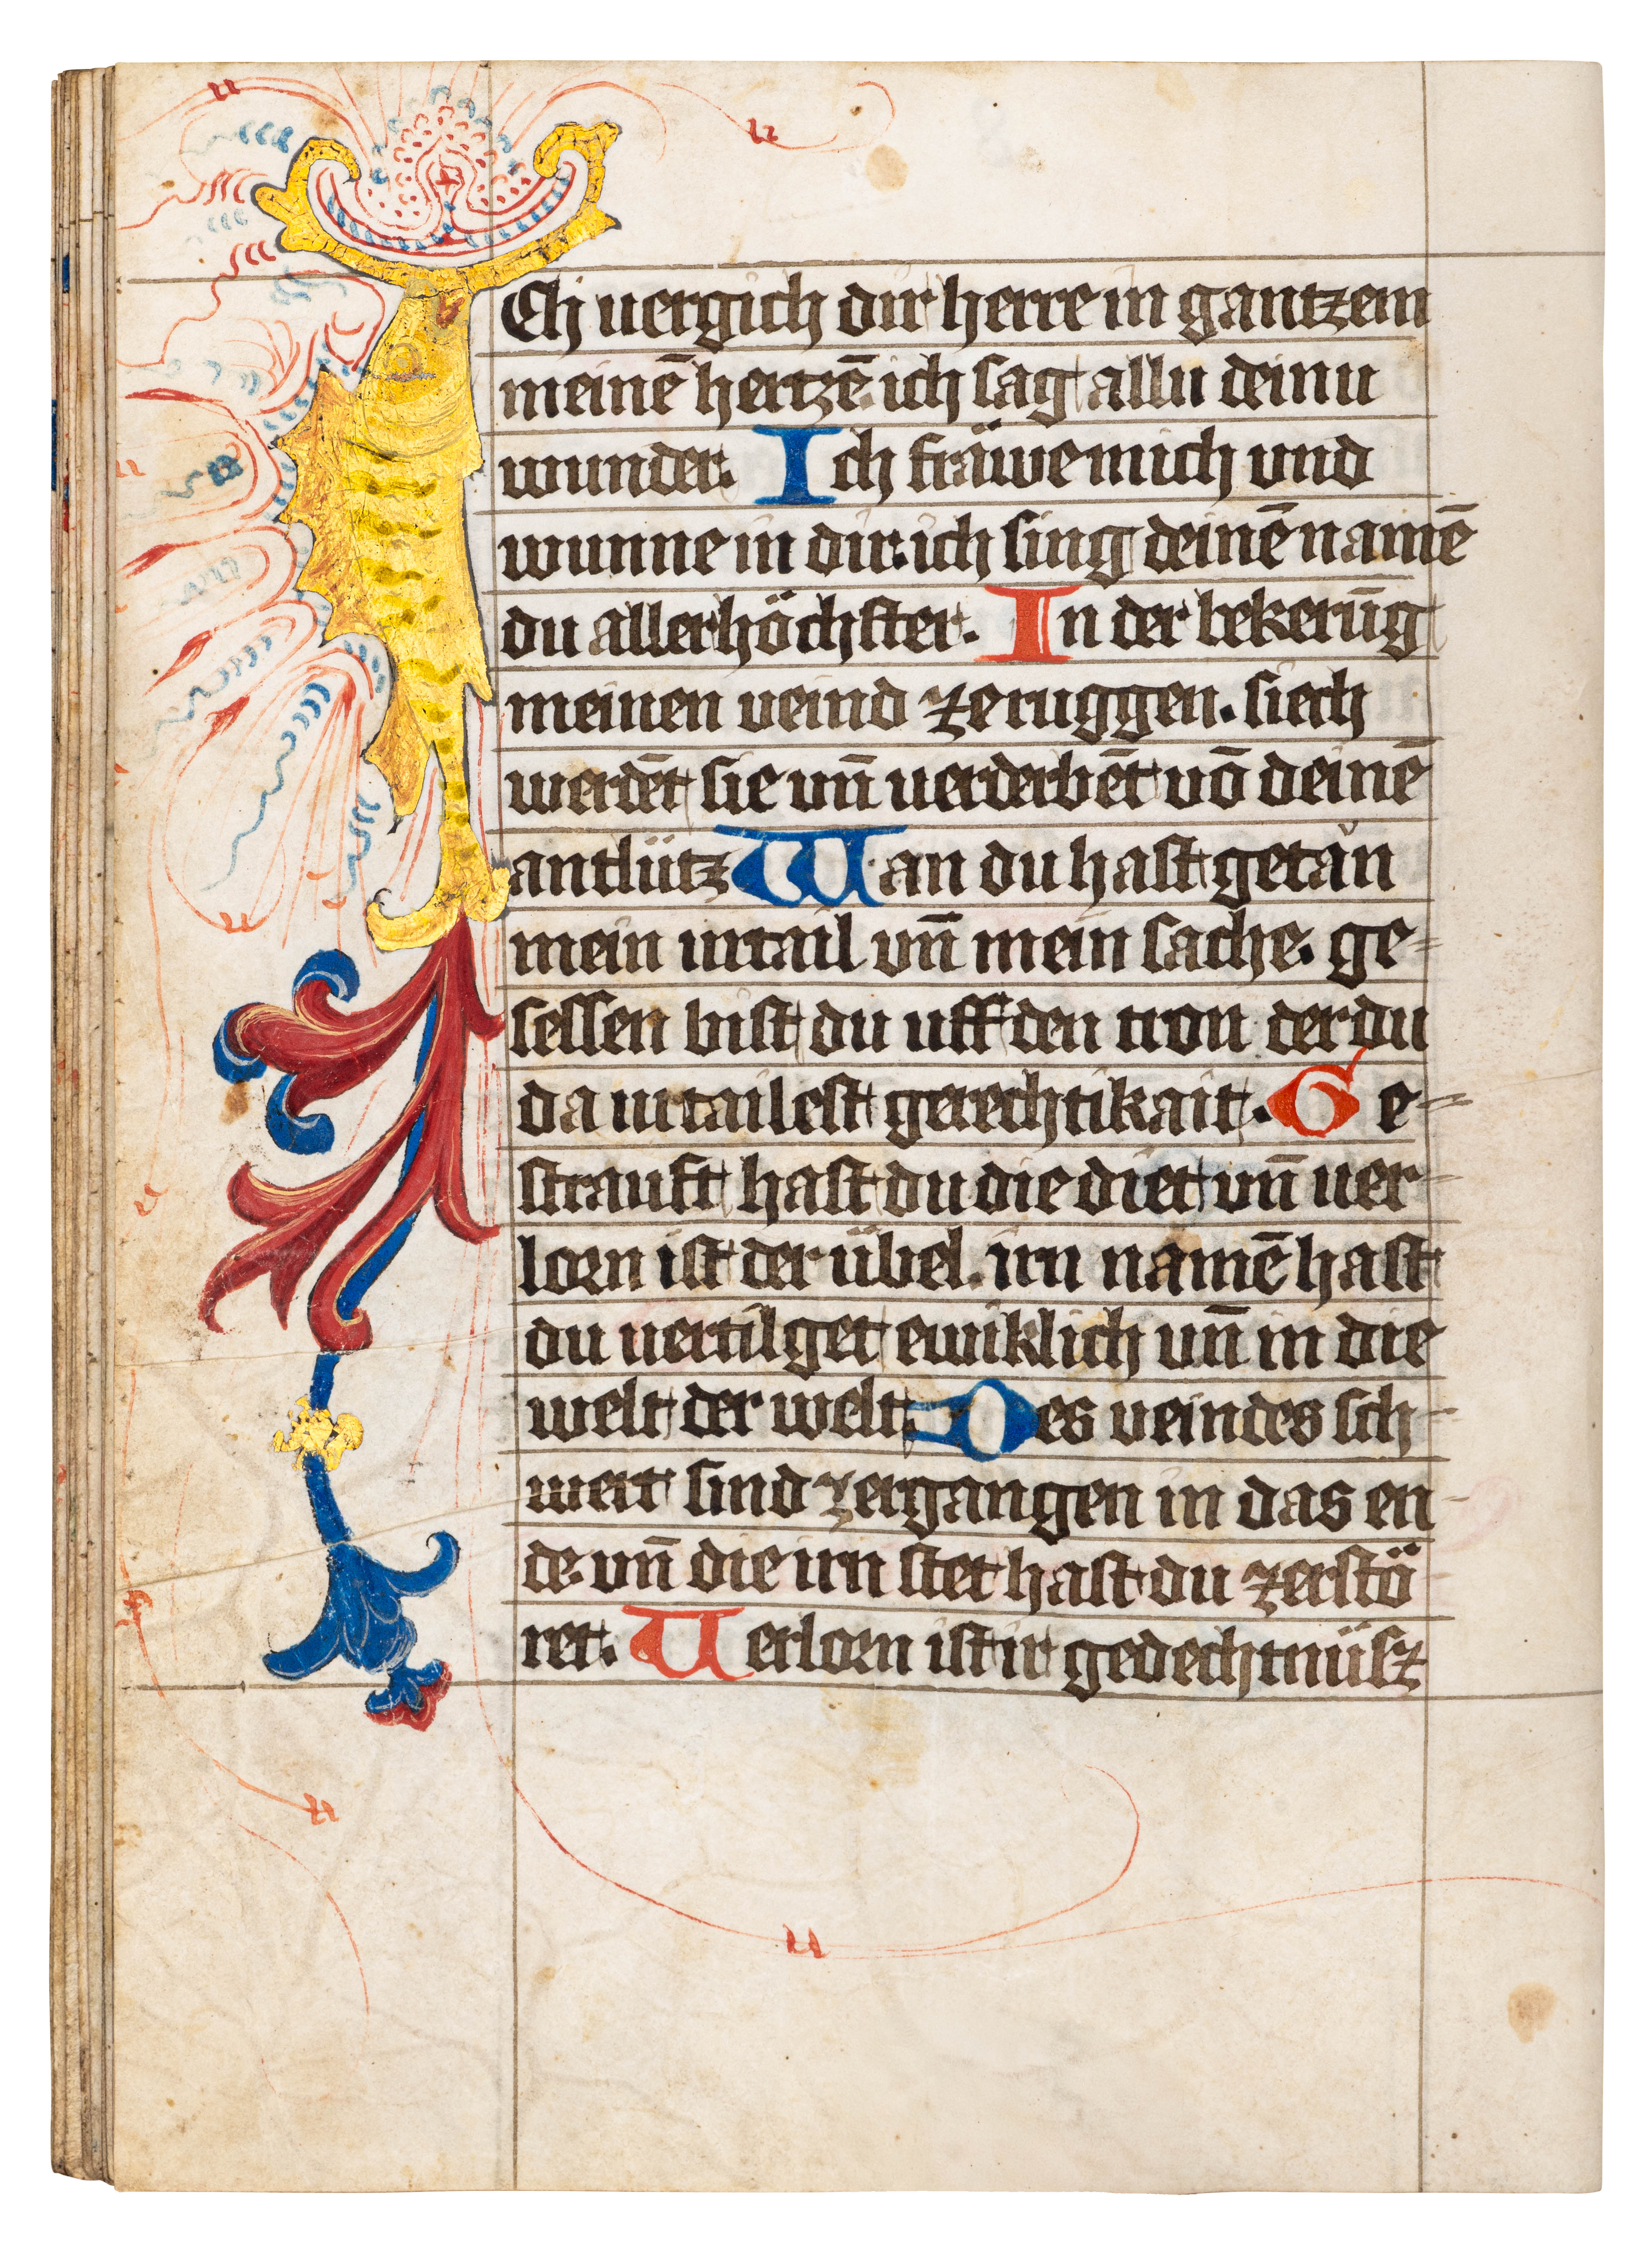 ICh uergich dir herre in gantzem
meinē hertzē. ich sag allu deinu
wunder. Ich fräwe mich vnd
wunne in dir. ich sing deinē namē
du allerhöchster. In der bekerūg
meinen veind ze ruggen. siech
werdēt sie vn̄ uerderbēt vō deinē
antlütz Wan du hast getan
mein urtail vn̄ mein sache. ge=
sessen bist du uff den tron der du
da urtailest gerechtikait. Ge=
strauft hast du die diet vn̄ uer-
lorn ist der übel. irn namē hast
du uertilget ewiklich vn̄ in die
welt der welt. Des veindes sch-
wert sind zergangen in das en-
de. vn̄ die irn stet hast du zerstö
ret. Uerlorn ist ir gedechtnüsz